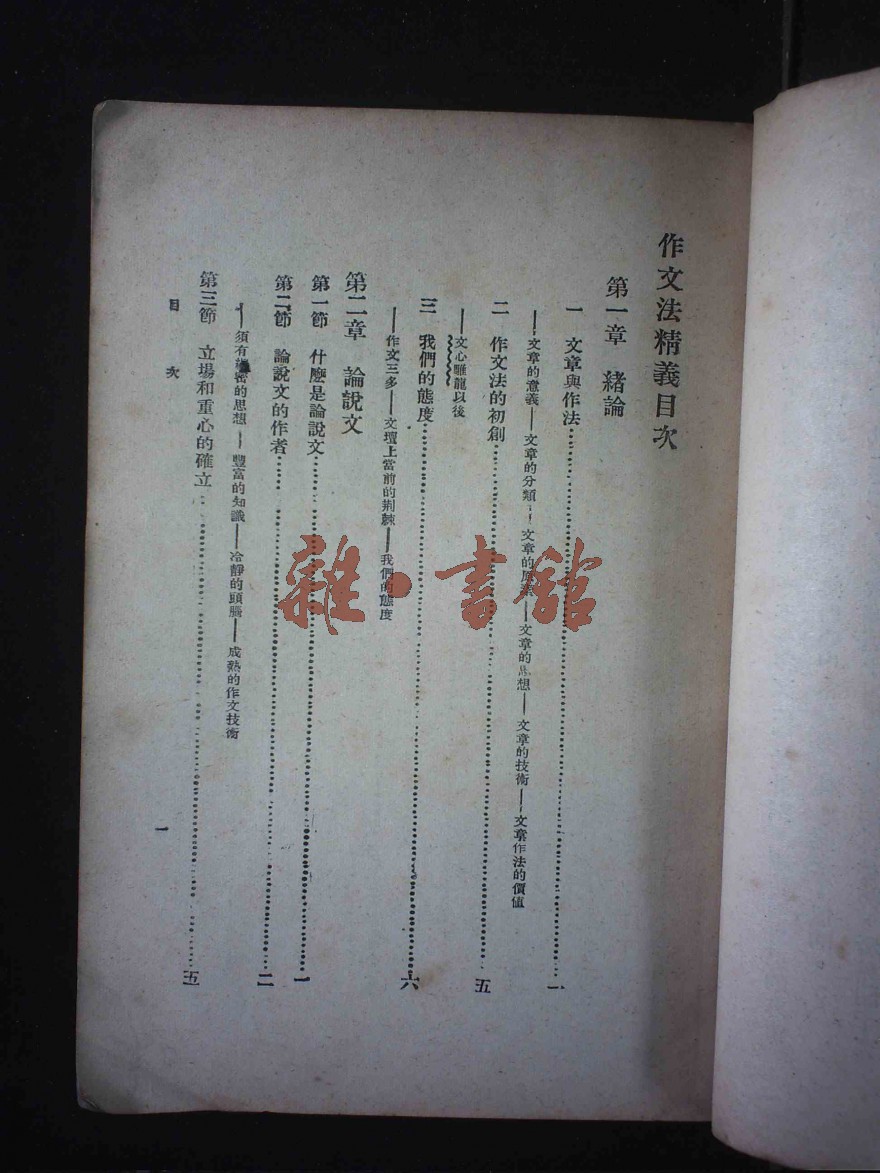 作文法精義目次
第一章 緒論
一 文章與作法……一
——文章的意義——文章的分類——文章的——文章的思想——文章的技術——文章作法的價値
二 作文法的初創……五
——文心雕龍以後
三 我們的態度……六
——作文三多——文壇上當前的荆棘——我們的態度
第二章 論說文
第一節 什麽是論說文……一
第二節 論說文的作者……二
——須有密的思想——豐富的知識——冷靜的頭腦——成熟的作文技術
第三節 立場和重心的確立……五
目次
一
雜·書館